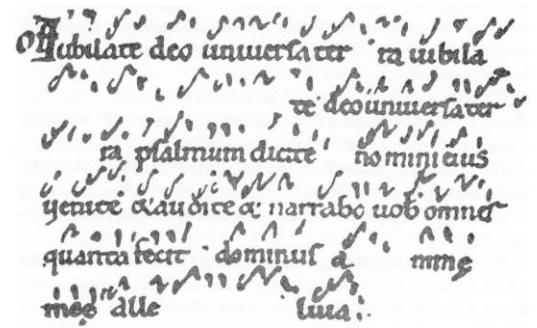 Of Iubilate deo uniuersa ter ra iubila
te deo uniuersa ter
ra psalmum dicite nomini eius
uenite & audite & narrabo uob omnes
quanta fecit dominus a nime
meę alle luia